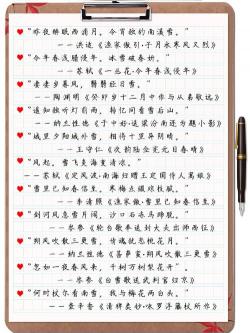 "昨夜醉眠西浦月。今宵独钓南溪雪。"
——洪适《渔家傲引·子月水寒风又烈》
"今年春浅腊侵年。冰雪破春妍。"
——苏轼《一丛花·今年春浅腊侵年》
"凄凄岁暮风，翳翳经日雪。"
——陶渊明《癸卯岁十二月中作与从弟敬远》
"遥知独听灯前雨，转忆同看雪后山。"
——纳兰性德《于中好·送梁汾南还为题小影》
"城里夕阳城外雪，相将十里异阴晴。"
——王守仁《次韵陆佥宪元日春晴》
"风起，雪飞炎海变清凉。"
——苏轼《定风波·南海归赠王定国侍人寓娘》
"雪里已知春信至。寒梅点缀琼枝腻。"
——李清照《渔家傲·雪里已知春信至》
"剑河风急雪片阔，沙口石冻马蹄脱。"
——岑参《轮台歌奉送封大夫出师西征》
"朔风吹散三更雪，倩魂犹恋桃花月。"
——纳兰性德《菩萨蛮·朔风吹散三更雪》
"忽如一夜春风来，千树万树梨花开"。
——岑参《白雪歌送武判官归京》
"何时杖尔看南雪，我与梅花两白头。"
——查辛香《清稗类钞·咏罗浮藤杖所作》